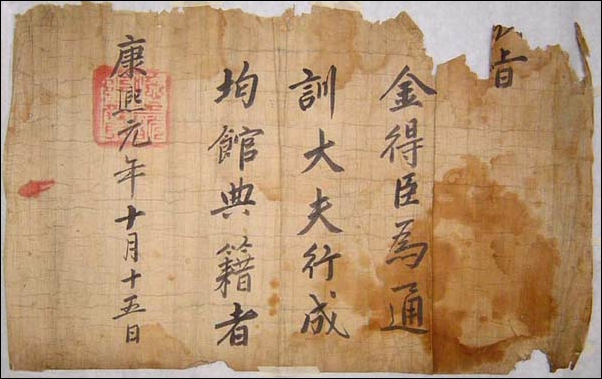 旨
金得臣為通
訓大夫行成
均館典籍者
康熙元年十月十五日